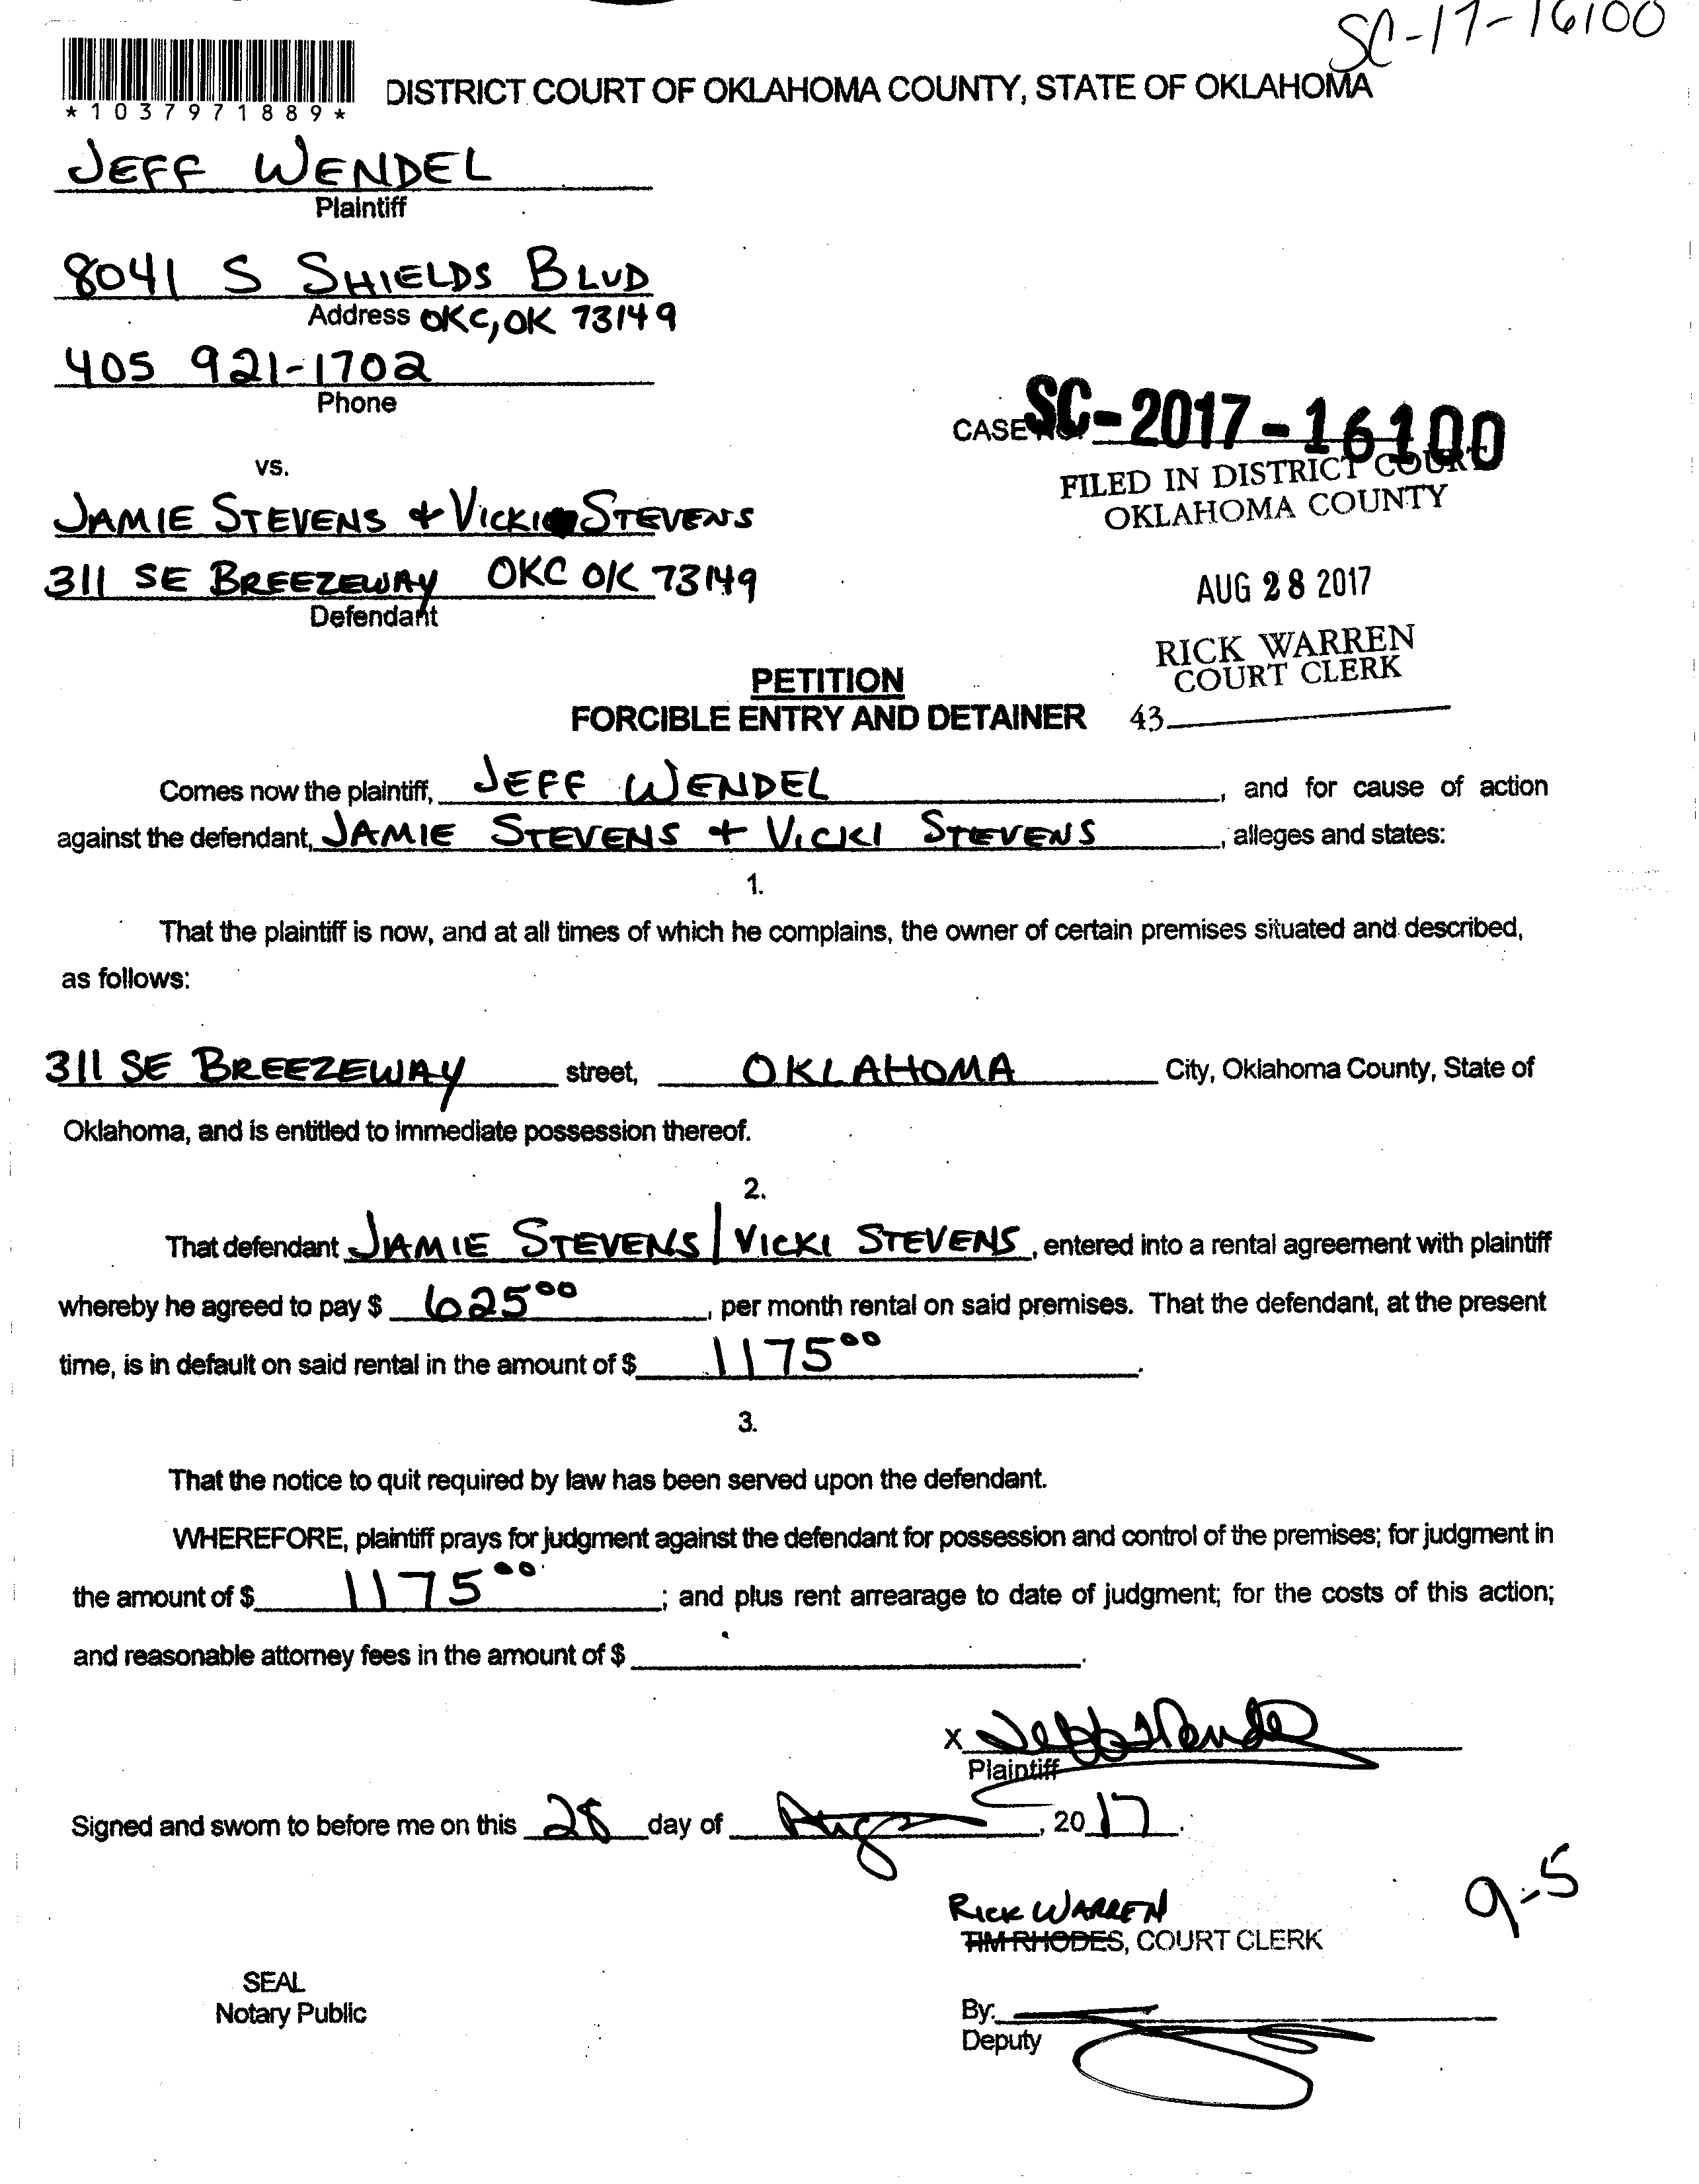 SC-17-16100
*1037971889*
DISTRICT COURT OF OKLAHOMA COUNTY, STATE OF OKLAHOMA
JEFF WENDEL
Plaintiff
8041 S SHIELDS BLVD
Address OKC, OK 73149
405 921-1702
Phone
CASE SC-2017-16100
FILED IN DISTRICT COURT
OKLAHOMA COUNTY
vs.
JAMIE STEVENS + VICKI STEVENS
311 SE BREEZEWAY OKC OK 73149
Defendant
AUG 28 2017
RICK WARREN
COURT CLERK
43
PETITION
FORCIBLE ENTRY AND DETAINER
Comes now the plaintiff, JEFF WENDEL, and for cause of action
against the defendant, JAMIE STEVENS + VICKI STEVENS, alleges and states:
1.
That the plaintiff is now, and at all times of which he complains, the owner of certain premises situated and described,
as follows:
311 SE BREEZEWAY street, OKLAHOMA City, Oklahoma County, State of
Oklahoma, and is entitled to immediate possession thereof.
2.
That defendant JAMIE STEVENS | VICKI STEVENS, entered into a rental agreement with plaintiff
whereby he agreed to pay $ 625⁰⁰, per month rental on said premises. That the defendant, at the present
time, is in default on said rental in the amount of $ 1175⁰⁰.
3.
That the notice to quit required by law has been served upon the defendant.
WHEREFORE, plaintiff prays for judgment against the defendant for possession and control of the premises; for judgment in
the amount of $ 1175⁰⁰; and plus rent arrearage to date of judgment; for the costs of this action;
and reasonable attorney fees in the amount of $ .
X Jeff Wendel
Plaintiff
Signed and sworn to before me on this 28 day of Aug, 2017.
9-5
RICK WARREN
TIM RHODES, COURT CLERK
SEAL
Notary Public
By:
Deputy